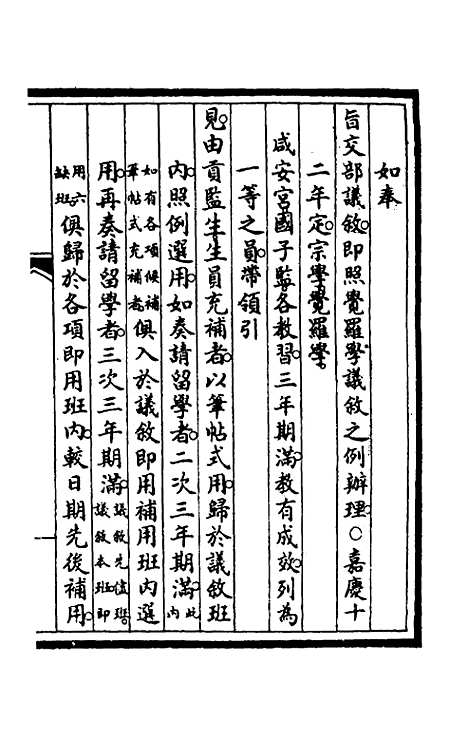 如奉
旨交部議敘即照覺羅學議敘之例辦理○嘉慶十
二年定宗學覺羅學
咸安宮國子監各教習三年期滿教有成效列為
一等之員帶領引
見由貢監生生員充補者以筆帖式用歸於議敘班
內照例選用如奏請留學者二次三年期滿此內
如有各項候補筆帖式充補者俱入於議敘即用補用班內選
用再奏請留學者三次三年期滿議敘先儘班議敘本班即
用六缺班俱歸於各項即用班內較日期先後補用